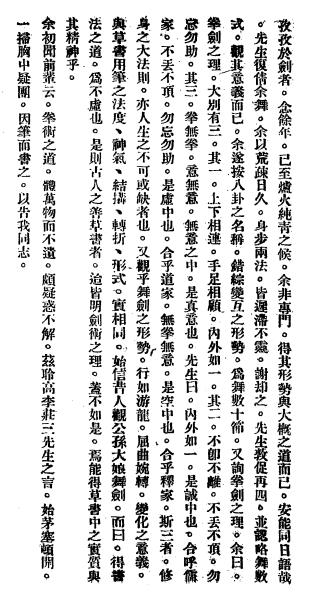 孜孜於劍者。念餘年。已至爐火純青之候。余非專門。得其形勢與大槪之道而已。安能同日語哉
。先生復倩余舞。余以荒疎日久。身步兩法。皆遲滯不靈。謝却之。先生敦促再四。並謂略舞數
式。觀其意義而已。余遂按八卦之名稱。錯綜變互之形勢。爲舞數十節。又詢拳劍之理。余曰。
拳劍之理。大別有三。其一。上下相連。手足相顧。內外如一。其二。不卽不離。不丟不頂。勿
忘勿助。其三。拳無拳。意無意。無意之中。是眞意也。先生曰。內外如一。是誠中也。合乎儒
家。不丟不頂。勿忘勿助。是虛中也。合乎道家。無拳無意。是空中也。合乎釋家。斯三者。修
身之大法則。亦人生之不可或缺者也。又觀乎舞劍之形勢。行如游龍。屈曲婉轉。變化之意義。
與草書用筆之法度、神氣、結搆、轉折、形式。實相同。始信昔人觀公孫大娘舞劍。而曰。得書
法之道。爲不虛也。是則古人之善草書者。迨皆明劍術之理。蓋不如是。焉能得草書中之實質與
其精神乎。
余初聞前輩云。拳術之道。體萬物而不遺。頗疑惑不解。茲聆高李莊三先生之言。始茅塞頓開。
一掃胸中疑團。因筆而書之。以告我同志。